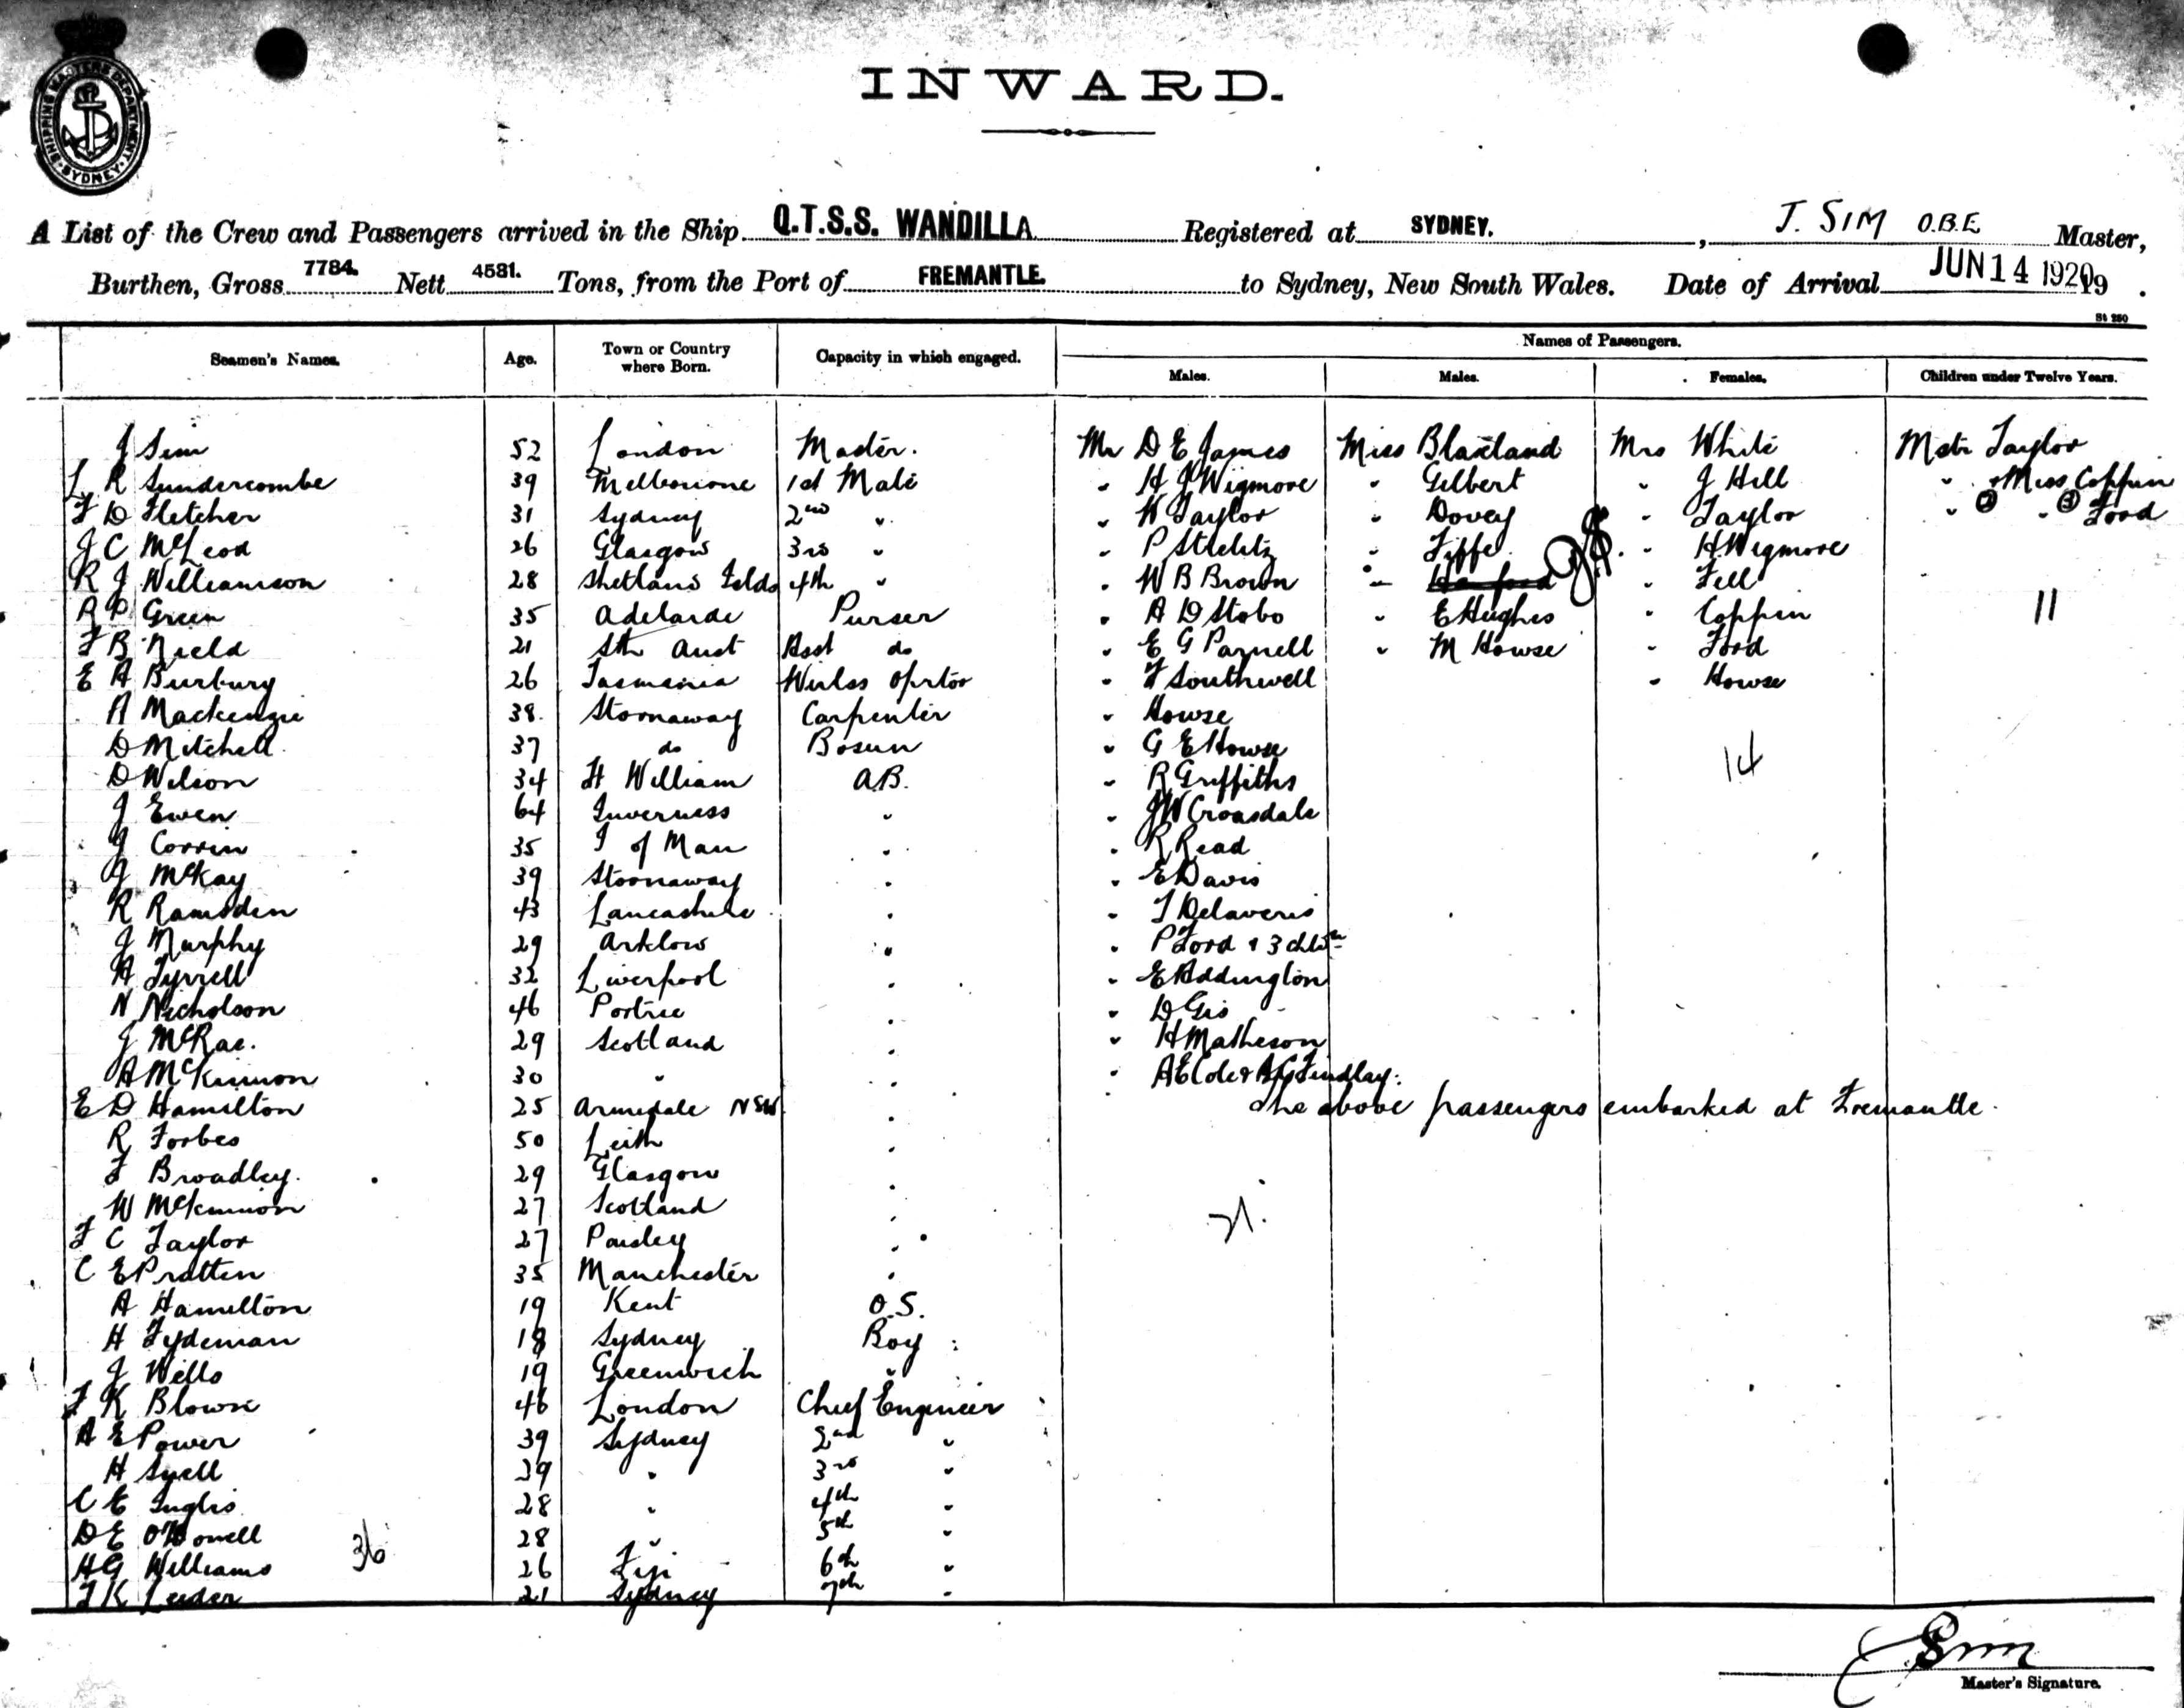 INWARD.
SHIPPING MASTERS DEPARTMENT SYDNEY
A List of the Crew and Passengers arrived in the Ship Q.T.S.S. WANDILLA Registered at SYDNEY. , J. SIM O.B.E Master,
Burthen, Gross 7784. Nett 4531. Tons, from the Port of FREMANTLE. to Sydney, New South Wales. Date of Arrival JUN 14 1920 19 .
St 250
Seamen's Names. Age. Town or Country where Born. Capacity in which engaged. Names of Passengers.
Males. Males. Females. Children under Twelve Years.
J Sim 52 London Master. Mr D E James Miss Blaxland Mrs White Mstr Taylor
L R Sundercombe 39 Melbourne 1st Mate " H J Wigmore " Gilbert " J Hill " Miss Coppin
F D Fletcher 31 Sydney 2nd " " W Taylor " Dovey " Taylor " " Ford
J C McLeod 26 Glasgow 3rd " " P Strelitz " Fiffe " H Wigmore
R J Williamson 28 Shetland Islds 4th " " W B Brown " " Fell
R P Green 35 Adelaide Purser " A D Stobo " E Hughes " Coppin 11
F B Nield 21 Sth Aust Asst do " E G Parnell " M Howse " Ford
E A Burbury 26 Tasmania Wirlss Oprtor " F Southwell " Howse
A Mackenzie 38. Stornaway Carpenter " Howse
D Mitchell 37 do Bosun " G E Howse 14
D Wilson 34 Ft William A.B. " R Griffiths
J Ewen 64 Inverness " " J W Croasdale
J Corrin 35 I of Man " " R Read
J McKay 39 Stornaway " " E Davis
R Ramsden 43 Lancashire " " T Delaveris
J Murphy 29 Arklow " " P Ford & 3 chldn
A Tyrrell 32 Liverpool " " E Addington
N Nicholson 46 Portree " " D Gis
J McRae. 29 Scotland " " H Matheson
A McKinnon 30 " " " A E Cole & A G Findlay.
E D Hamilton 25 Armidale NSW. " The above passengers embarked at Fremantle.
R Forbes 50 Leith "
F Broadley. 29 Glasgow "
W McKinnon 27 Scotland "
F C Taylor 27 Paisley "
C E Pratten 35 Manchester "
A Hamilton 19 Kent O.S.
H Fydeman 18 Sydney Boy
J Wills 19 Greenwich "
F K Blown 46 London Chief Engineer
A E Power 39 Sydney 2nd "
H Snell 39 " 3rd "
C E Inglis 28 " 4th "
D E O'Donnell 28 " 5th "
H G Williams 36 26 Fiji 6th "
F K Leeder 21 Sydney 7th "
Sim
Master's Signature.